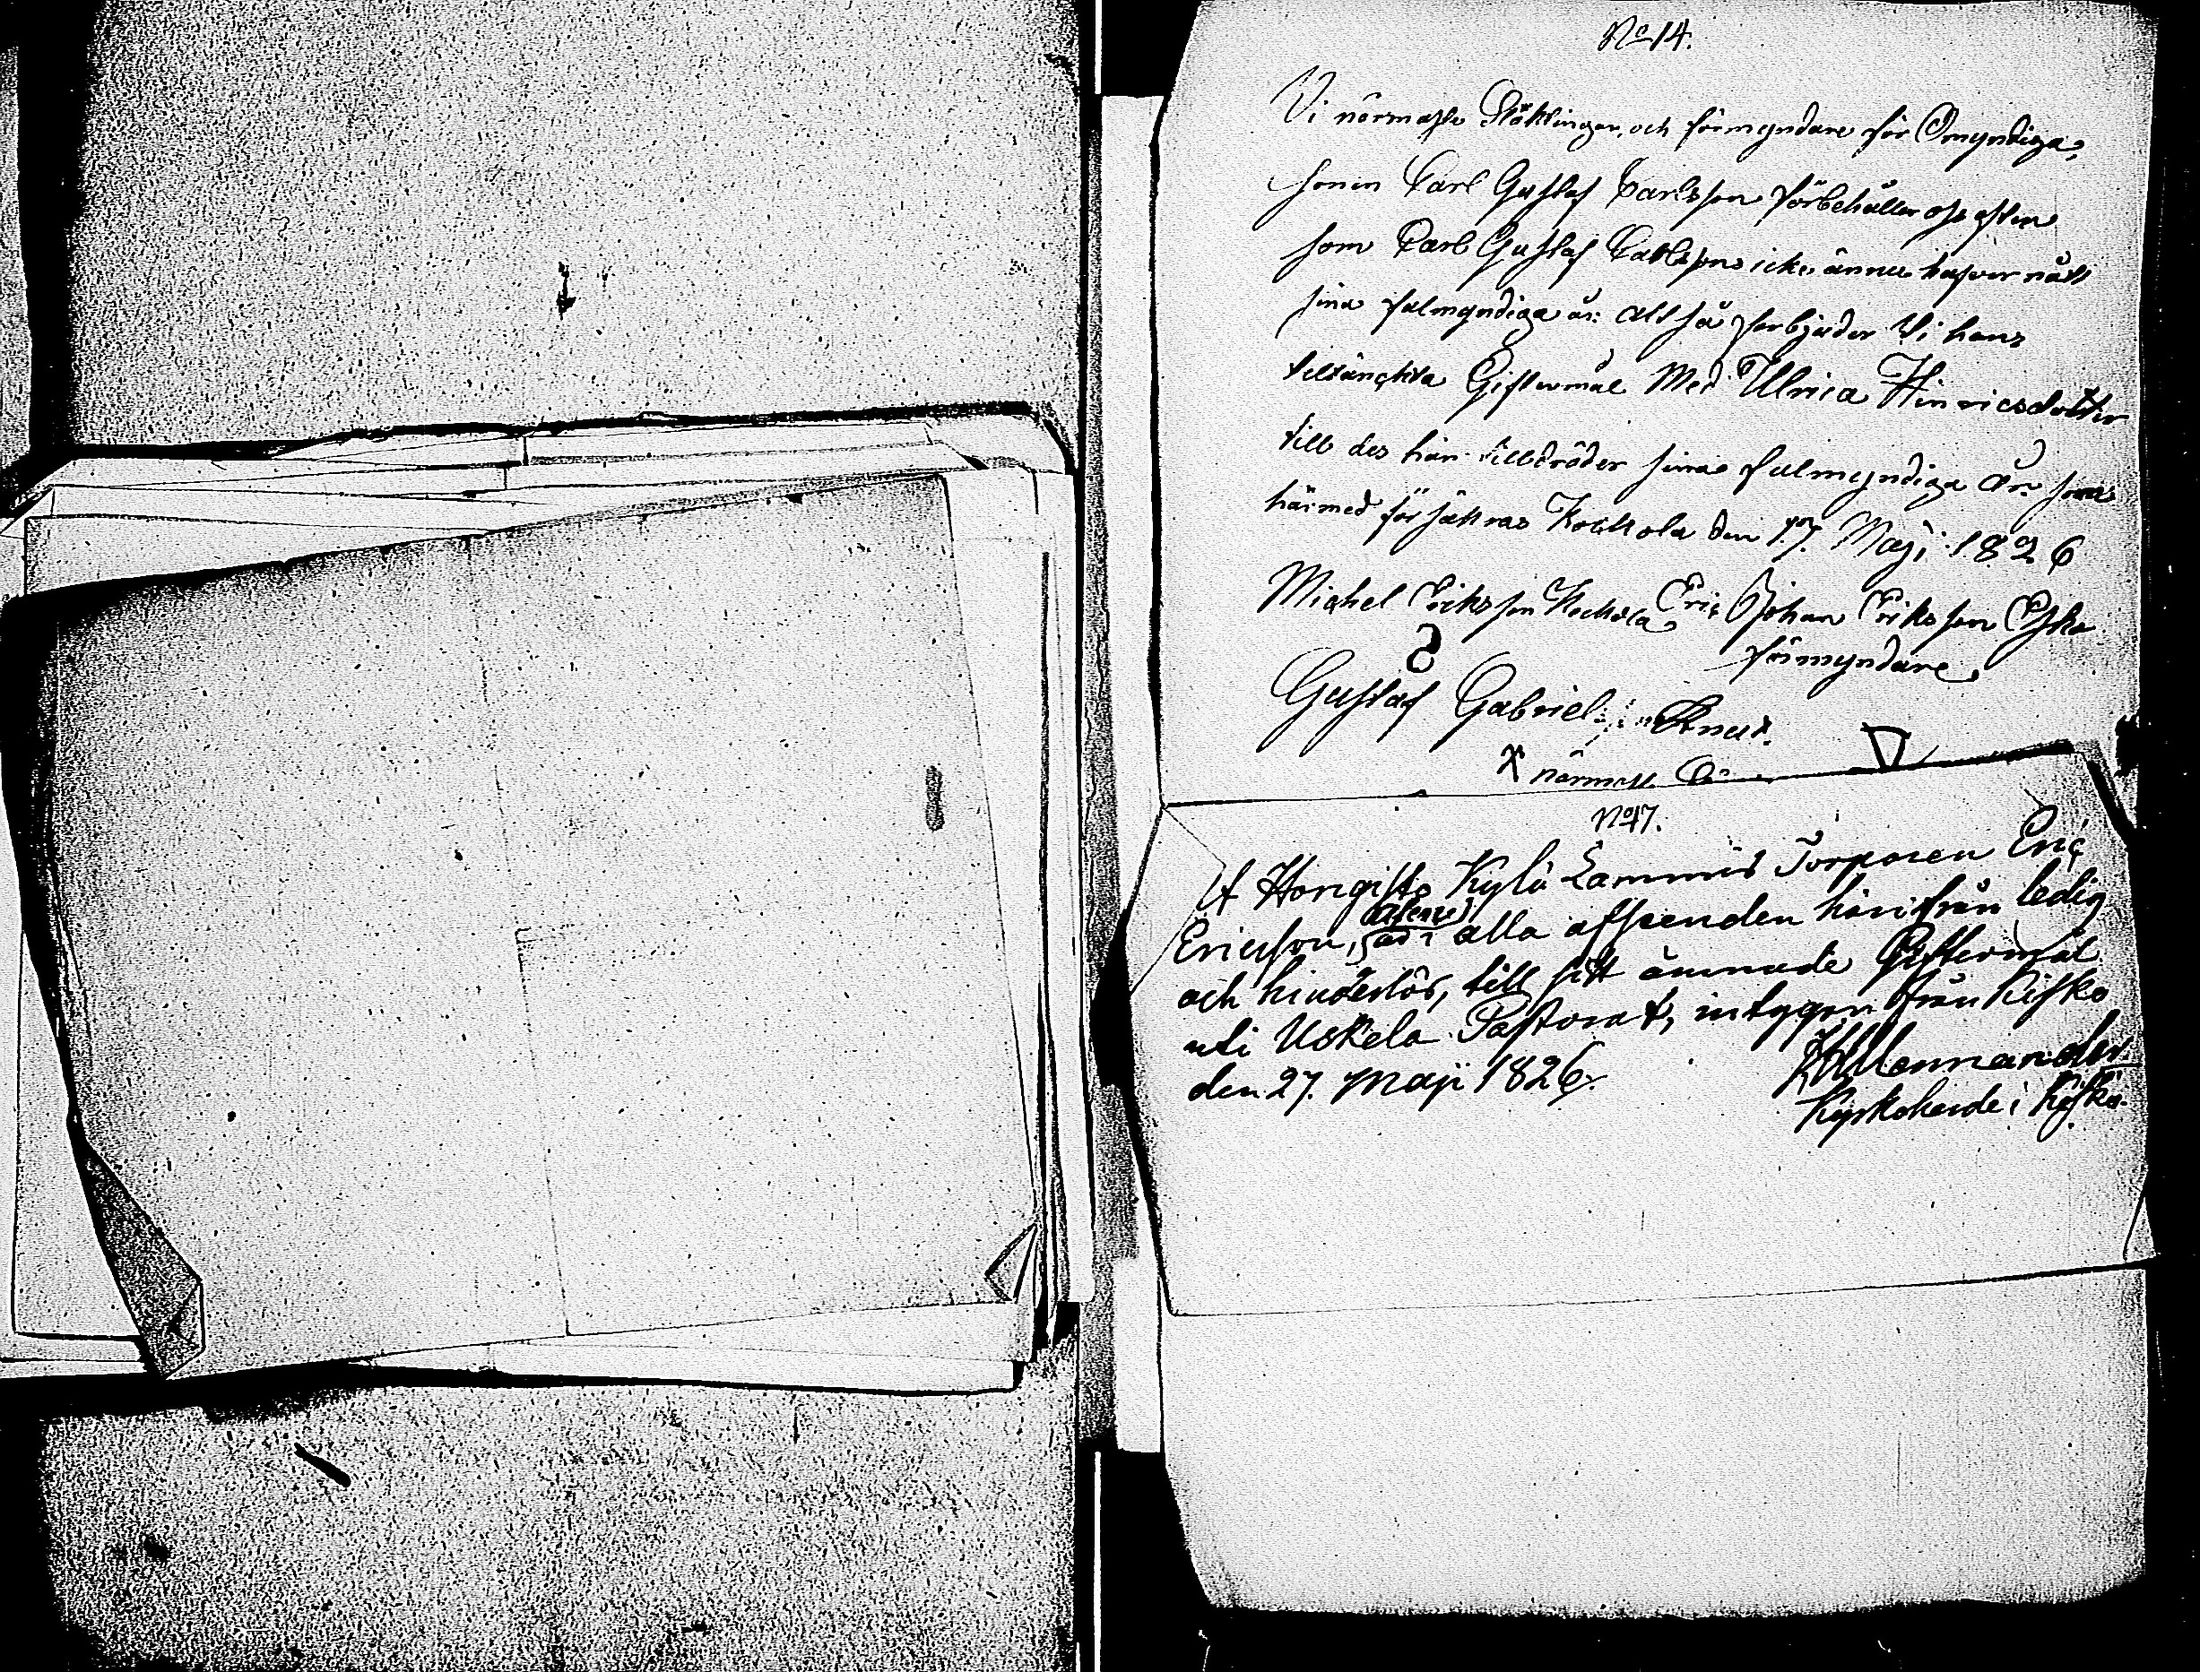 No 14.
Vi närmaste Släktingar, och förmyndare för Omyndiga,
sonen Carl Gustaf Carlsson förbehåller oss efter
som Carl Gustaf Carlsson icke ännu hafver nått
sina fulmyndiga år: altså förbjuder Vi hans
tiltänckta Giftermål Med Ulrica Hinricsdotter
till des han tillträder sina fulmyndiga År: som
härmed försäkras Kockola den 17. Maji 1826
Michel Eriksson Kockola Eric Johan Eriksson
förmyndare
Gustaf Gabriel
närmast
No 17.
Hongisto Kylä Lammis Torparen Eric
Ericsson, är i alla afseenden härifrån ledig
och hinderlös, till sitt ämnade Giftermål
uti Uskela Pastorat, intygar från Kisko
den 27. Maji 1826.
Mennander
Kyrkoherde i Kisko.